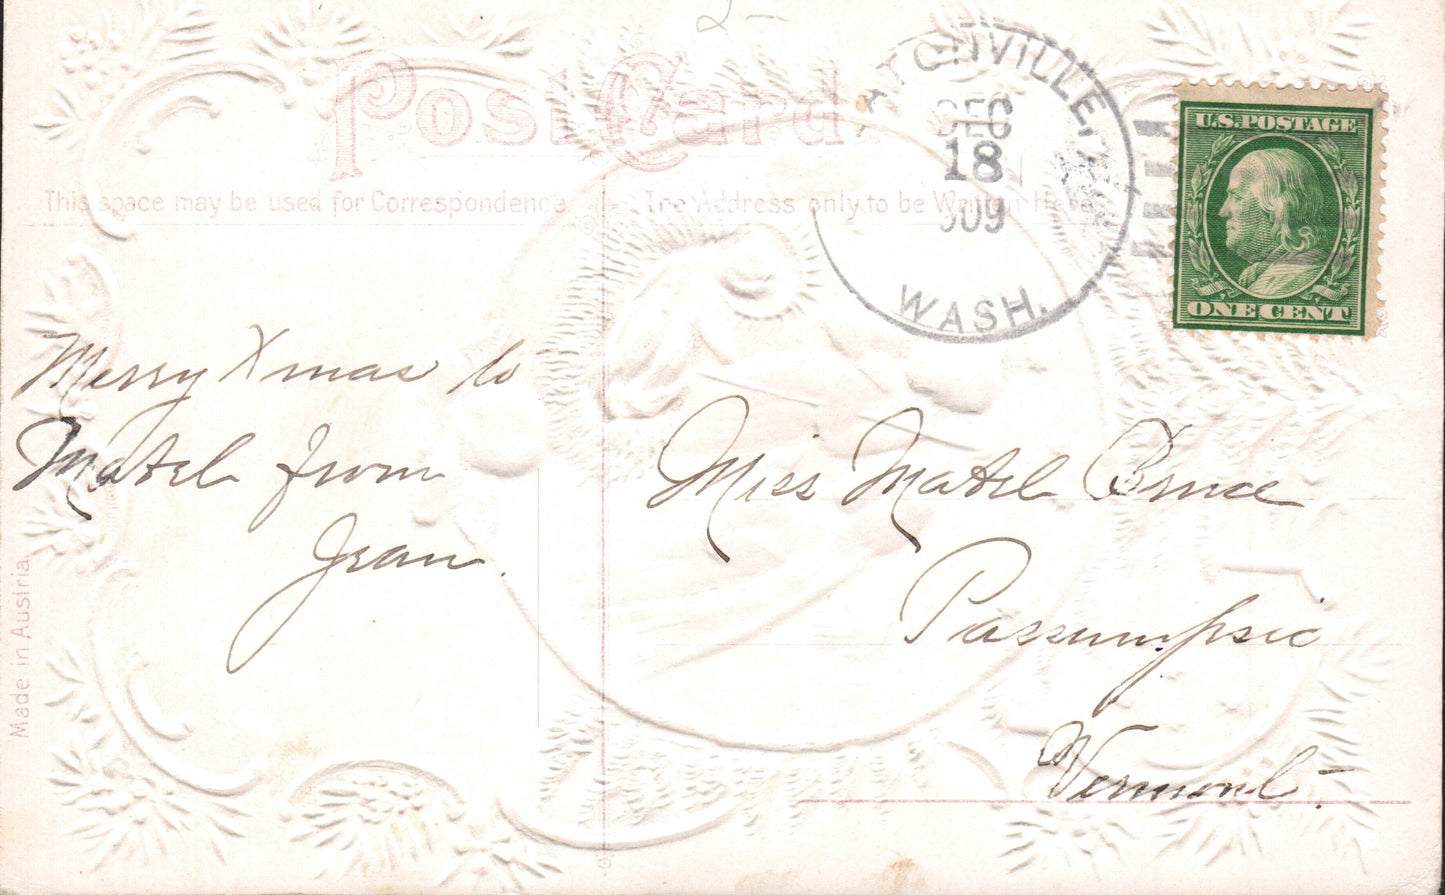 2-
Post Card
ATONVILLE,
DEC
18
909
WASH.
U.S. POSTAGE
ONE CENT
This space may be used for Correspondence
The Address only to be Written Here
Merry Xmas to
Mabel from
Jean.
Miss Mabel Bruce
Passumpsic
Vermont.
Made in Austria